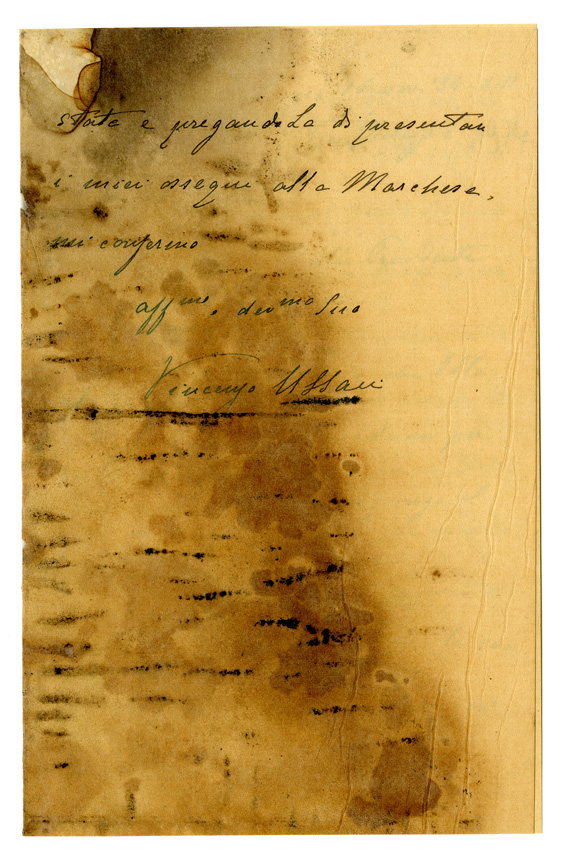 state e pregandoLa di presentare
i miei ossequi alla Marchesa,
mi confermo
aff mo e dev mo Suo
Vincenzo Ussani